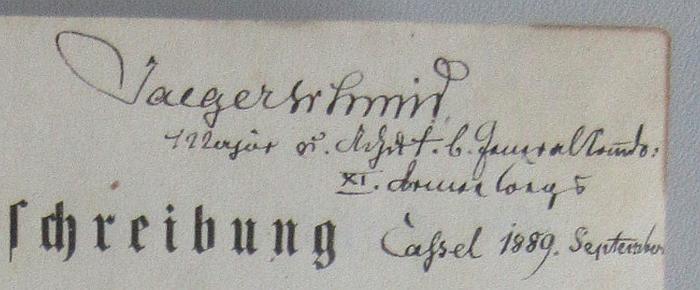 Jaegerschmid,
Major u. Adjdt. b. Generalkomdo:
XI. Armee Corps
schreibung Cassel 1889. September